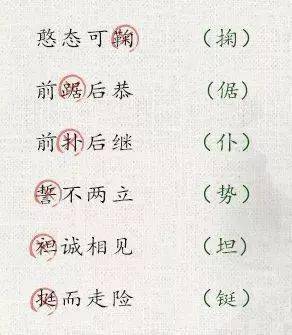 憨态可鞠 （掬）
前踞后恭 （倨）
前扑后继 （仆）
誓不两立 （势）
袒诚相见 （坦）
挺而走险 （铤）